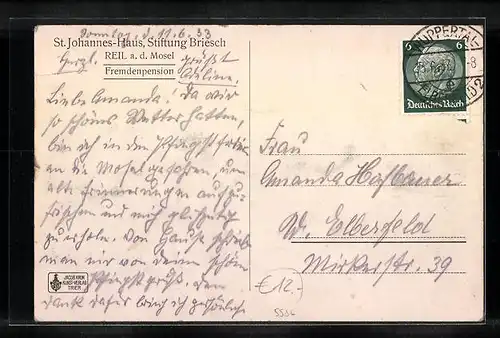 Sonntag, d. 11.6.33
St. Johannes-Haus, Stiftung Briesch
REIL a. d. Mosel
Fremdenpension
Herzl. grüßt
Adeline.
Liebe Amanda! Da wir
so schönes Wetter hatten,
bin ich in den Pfingstferien
an die Mosel gefahren, um
alte Erinnerungen aufzu-
frischen und mich gleichzeitig
zu erholen. Von Hause schickte
man mir von deinen schönen
Pfingstgruß. Den
Dank dafür bring ich persönlich
JACOB KRON
KUNSTVERLAG
TRIER
WUPPERTAL-
6 6
Deutsches Reich
Frau
Amanda Hofbauer
W. Elberfeld
Mirkerstr. 39
€12.-
5536